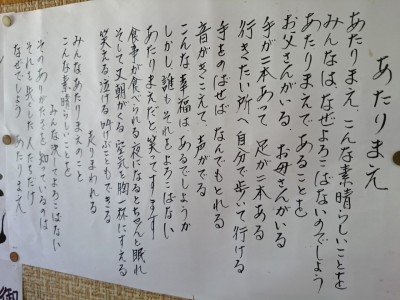 あたりまえ
あたりまえ、こんな素晴らしいことを
みんなは、なぜよろこばないのでしょう
あたりまえで、あることを
お父さんがいる、お母さんがいる
手が二本あって 足が二本ある
行きたい所へ自分で歩いて行ける
手をのばせば なんでもとれる
音がきこえて、声がでる
こんな幸福は あるでしょうか
しかし、誰もそれをよろこばない
あたりまえだと 笑ってすます
食事が食べられる 夜になるとちゃんと眠れ
そして又、朝がくる 空気を胸一杯にすえる
笑える 泣ける 叫ぶこともできる
走りまわれる
みんなあたりまえのこと
こんな素晴らしいことを
みんな決してよろこばない
そのありがたさを知っているのは
それを失った人たちだけ
なぜでしょう あたりまえ
御